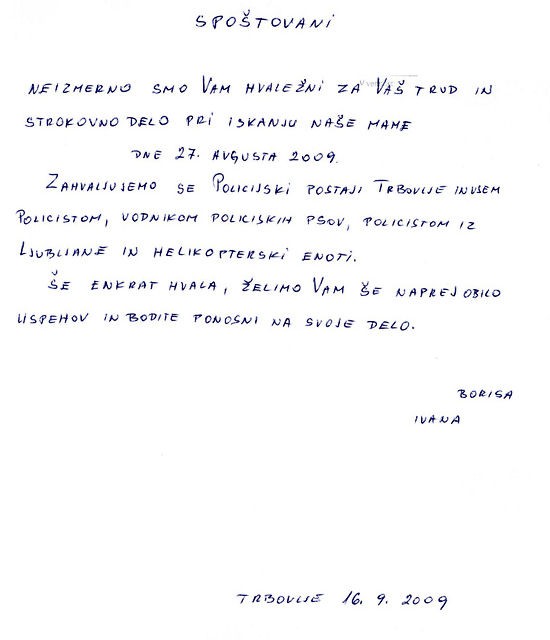 SPOŠTOVANI
NEIZMERNO SMO VAM HVALEŽNI ZA VAŠ TRUD IN
STROKOVNO DELO PRI ISKANJU NAŠE MAME
DNE 27. AVGUSTA 2009.
ZAHVALJUJEMO SE POLICIJSKI POSTAJI TRBOVLJE IN VSEM
POLICISTOM, VODNIKOM POLICIJSKIH PSOV, POLICISTOM IZ
LJUBLJANE IN HELIKOPTERSKI ENOTI.
ŠE ENKRAT HVALA, ŽELIMO VAM ŠE NAPREJ OBILO
USPEHOV IN BODITE PONOSNI NA SVOJE DELO.
BORISA
IVANA
TRBOVLJE 16. 9. 2009